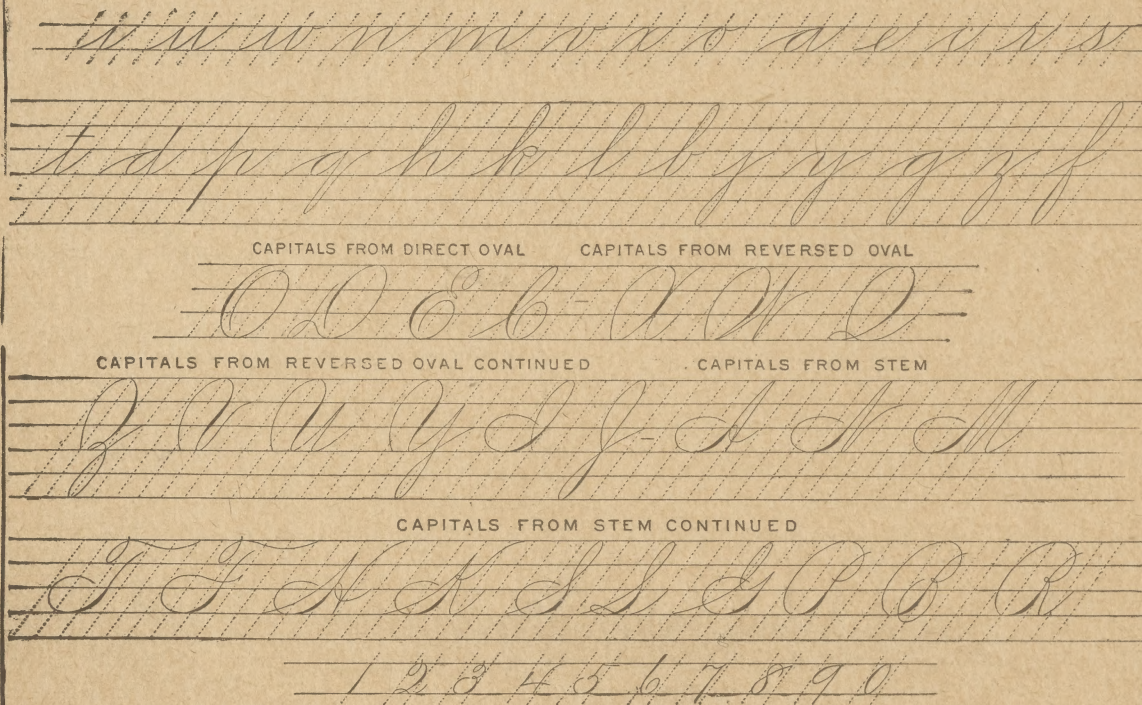 i u w n m v x o a e c r s
t d p q h k l b j y g z f
CAPITALS FROM DIRECT OVAL CAPITALS FROM REVERSED OVAL
O D E C - X W Q
CAPITALS FROM REVERSED OVAL CONTINUED CAPITALS FROM STEM
Z V U Y I J - A N M
CAPITALS FROM STEM CONTINUED
T F H K S L G P B R
1 2 3 4 5 6 7 8 9 0